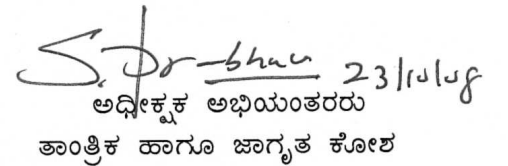 23/10/08
ಅಧೀಕ್ಷಕ ಅಭಿಯಂತರರು
ತಾಂತ್ರಿಕ ಹಾಗೂ ಜಾಗೃತ ಕೋಶ